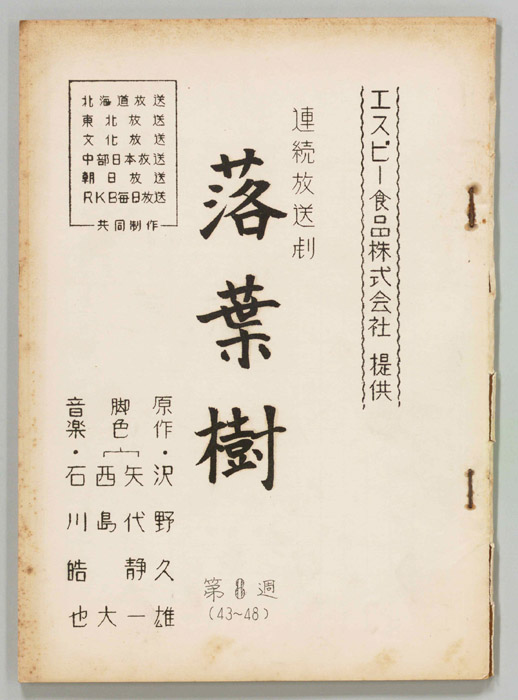 エスピー食品株式会社 提供
連続放送劇
落葉樹
第8週
(43~48)
北海道放送
東北放送
文化放送
中部日本放送
朝日放送
RKB毎日放送
共同制作
原作・沢野久雄
脚色
矢代静一
西島大
音楽・石川皓也